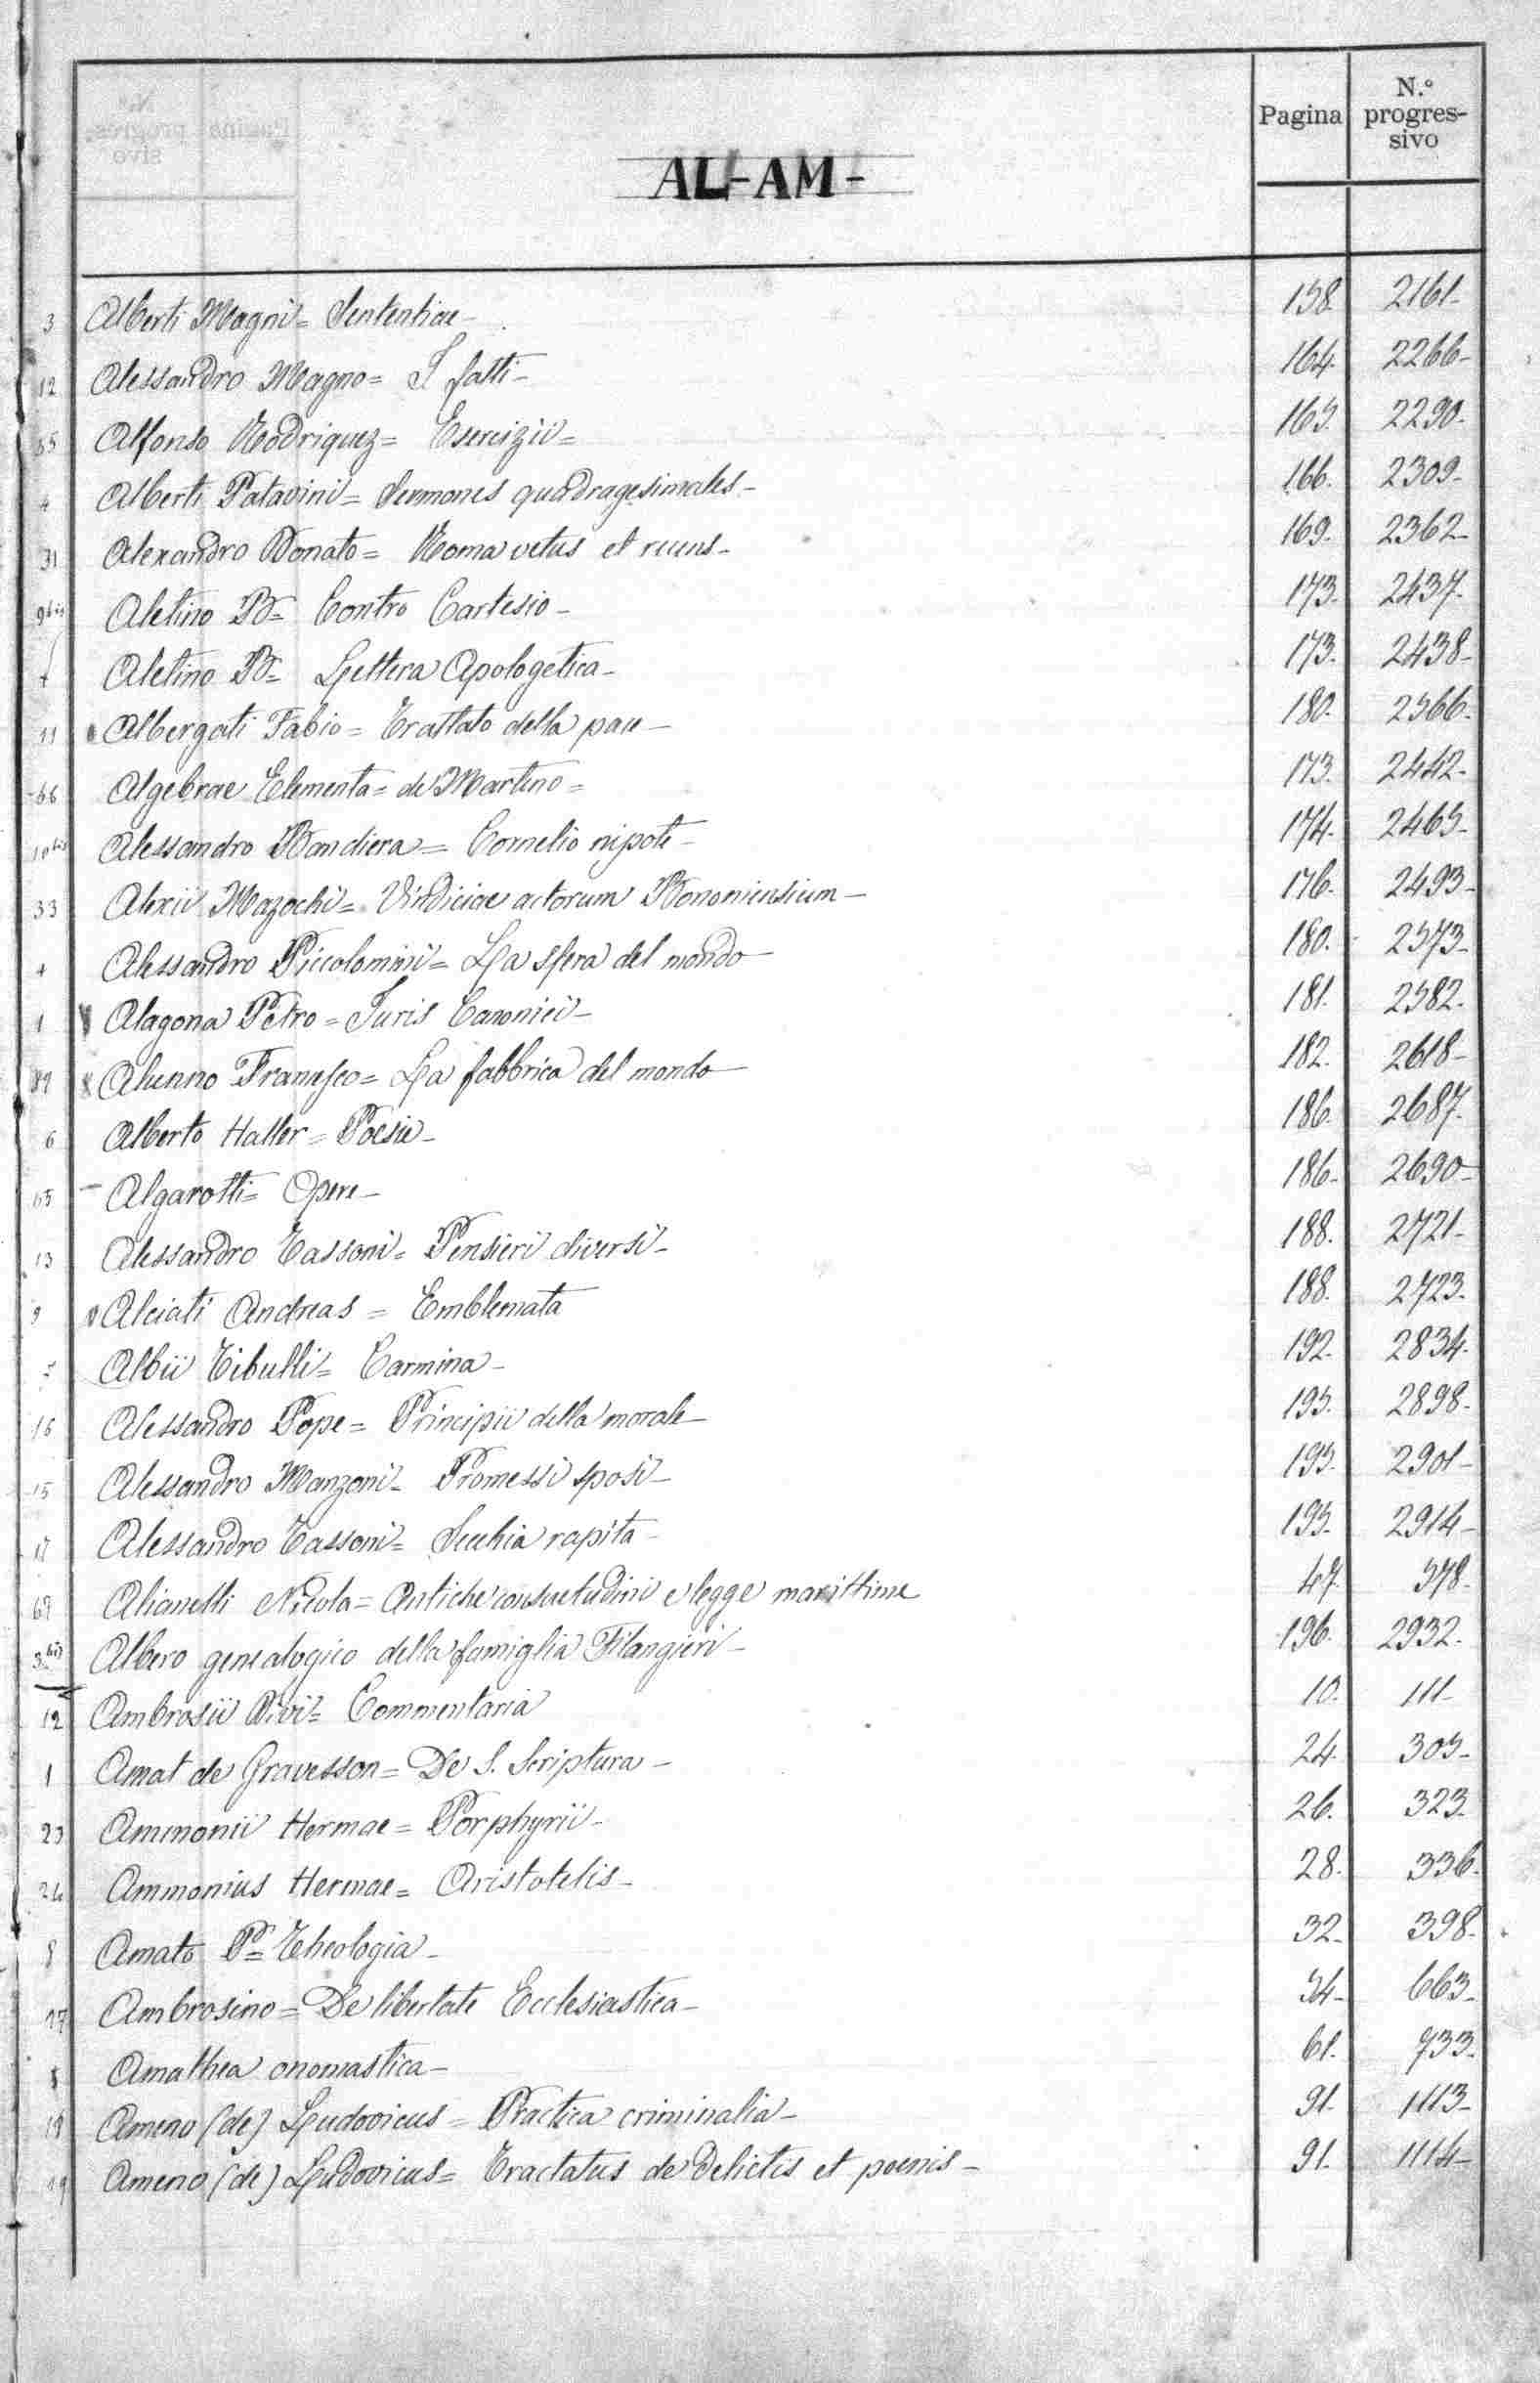 Pagina
N.º progres-
sivo
AL-AM-
3 Alberti Magni = Sententiae - 158. 2161-
12 Alessandro Magno = I fatti - 164. 2266-
65 Alfonso Rodriquez = Esercizii = 165. 2290-
4 Alberti Patavini = Sermones quadragesimales - 166. 2309-
31 Alexandro Donato = Roma vetus et recens - 169. 2362-
9bis Aletino B = Contro Cartesio - 173. 2437-
Aletino B = Lettera Apologetica - 173. 2438-
11 Albergati Fabio = Trattato della pace - 180. 2566-
66 Algebrae Elementa = de Martino = 173. 2442-
10bis Alessandro Bandiera = Cornelio nipote - 174. 2465-
33 Alexii Mazochi = Vindiciae actorum Bononiensium - 176. 2493-
4 Alessandro Piccolomini = La sfera del mondo - 180. 2573-
1 Alagona Petro = Juris Canonici - 181. 2582-
89 Alunno Francesco = La fabbrica del mondo - 182. 2618-
6 Alberto Haller = Poesie - 186. 2687-
65 - Algarotti = Opere - 186- 2690-
13 Alessandro Tassoni = Pensieri diversi - 188. 2721-
9 Alciati Andreas = Emblemata 188. 2723-
Albii Tibulli = Carmina - 192. 2834-
16 Alessandro Pope = Principii della morale - 195. 2898-
15 Alessandro Manzoni - Promessi sposi - 195. 2901-
17 Alessandro Tassoni = Secchia rapita - 195. 2914-
69 Alianelli Nicola = Antiche consuetudini e legge marittime 47. 578-
3bis Albero genealogico della famiglia Filangieri - 196. 2932-
12 Ambrosii Divi = Commentaria 10. 111-
1 Amat de Gravesson = De S. Scriptura - 24. 305-
23 Ammonii Hermae = Porphyrii - 26. 323-
24 Ammonius Hermae = Aristotelis - 28. 336-
8 Amato P = Theologia - 32. 398-
17 Ambrosino = De libertate Ecclesiastica - 54- 663-
Amalthea onomastica - 61. 733-
18 Ameno (de) Ludovicus = Practica criminalia - 91- 1113-
19 Ameno (de) Ludovicus = Tractatus de delictis et poenis - 91. 1114-